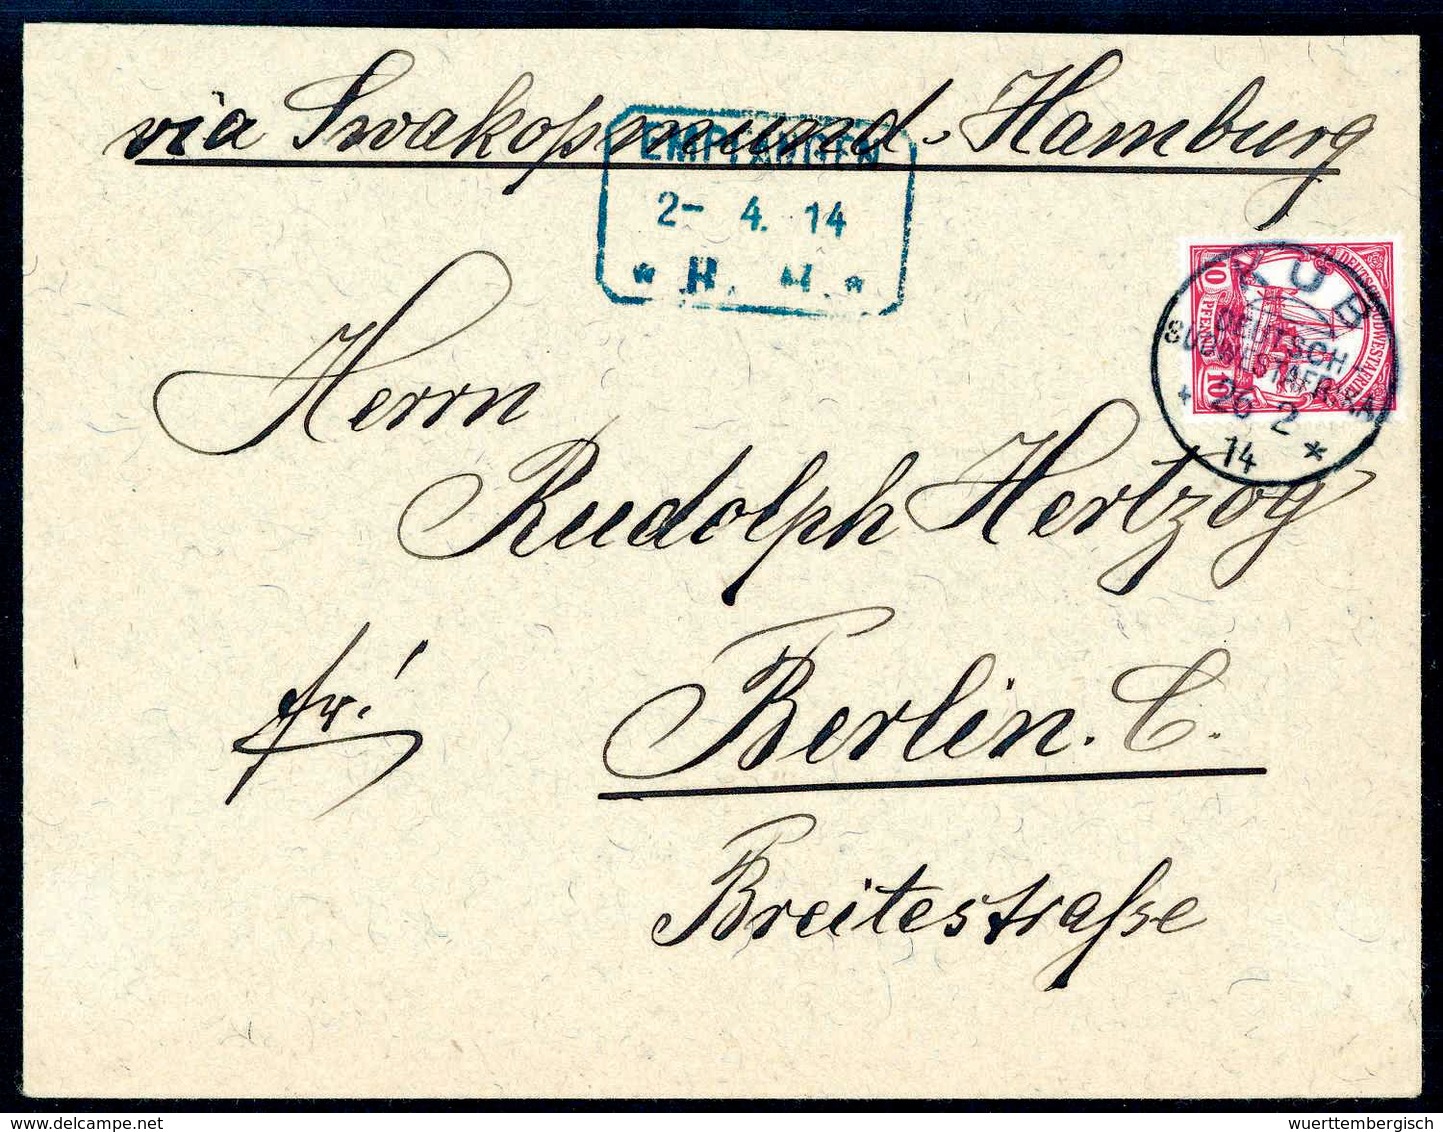 via Swakopmund-Hamburg
EMPFANGEN
2- 4. 14
* R. H. *
10 PFENNIG 10
DEUTSCH-SÜDWESTAFRIKA
KUB
DEUTSCH
SÜDWESTAFRIKA
* 26 2 *
14
Herrn
Rudolph Hertzog
fr!
Berlin. C.
Breitestraße
wuerttembergisch
delcampe.net